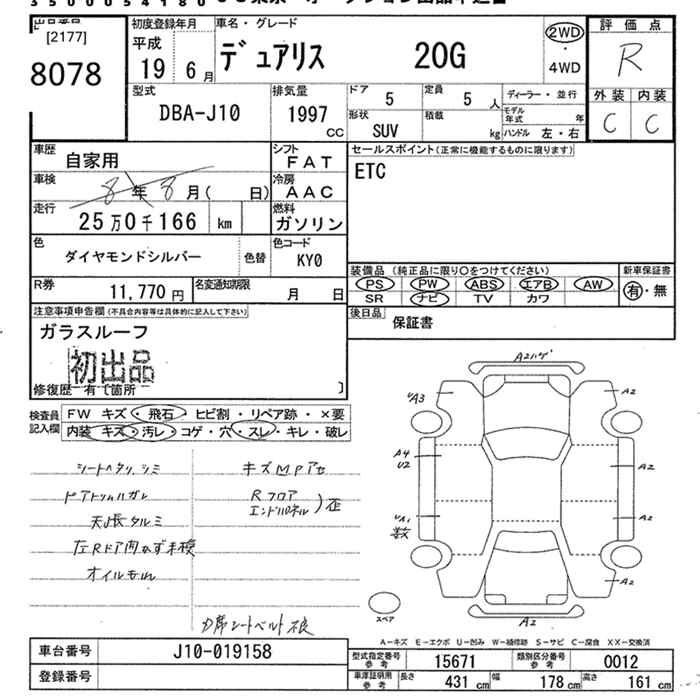 35000054180
出品番号
[2177]
8078
初度登録年月
平成
19 6月
車名・グレード
デュアリス 20G
2WD
・
4WD
評価点
R
外装 内装
C C
型式
DBA-J10
排気量
1997
CC
ドア
5
定員
5 人
形状
SUV
積載
kg
ディーラー・並行
モデル年式 年
ハンドル 左・右
車歴
自家用
シフト
FAT
車検
8年8月( 日)
冷房
AAC
走行
25万0千166 km
燃料
ガソリン
色
ダイヤモンドシルバー
色替
色コード
KY0
R券
11,770円
名変通知期限
月 日
セールスポイント(正常に機能するものに限ります)
ETC
装備品 (純正品に限り○をつけてください)
PS PW ABS エアB AW
SR ナビ TV カワ
新車保証書
有・無
後日品
保証書
注意事項申告欄(不具合内容等は具体的に記入して下さい)
ガラスルーフ
初出品
修復歴 有〔箇所 〕
検査員
記入欄
FW キズ・飛石・ヒビ割・リペア跡・×要
内装 キズ・汚レ・コゲ・穴・スレ・キレ・破レ
シートヘタリ、シミ
ドアトリムハガレ
天張タルミ
オイルモレ
キズMPアセ
Rフロア
エンドパネル)歪
A2
A3
A2
A4
U2
A2
A2
A2
A2
スペア
A-キズ E-エクボ U-凹み W-補修跡 S-サビ C-腐食 XX-交換済
車台番号
J10-019158
登録番号
型式指定番号
参考
15671
類別区分番号
参考
0012
車庫証明用
参考
長さ
431 cm
幅
178 cm
高さ
161 cm